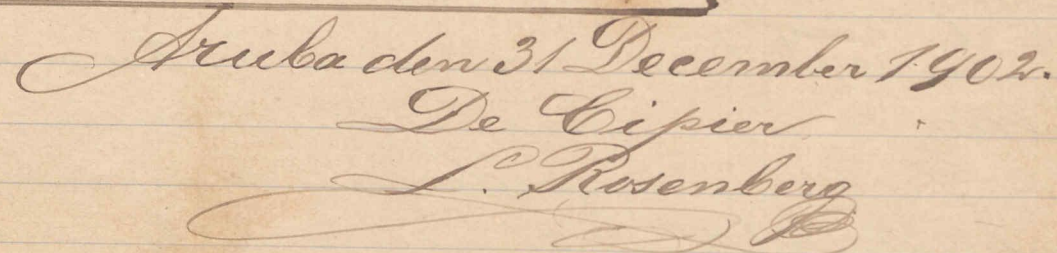 Aruba den 31 December 1902.
De Cipier
L. Rosenberg